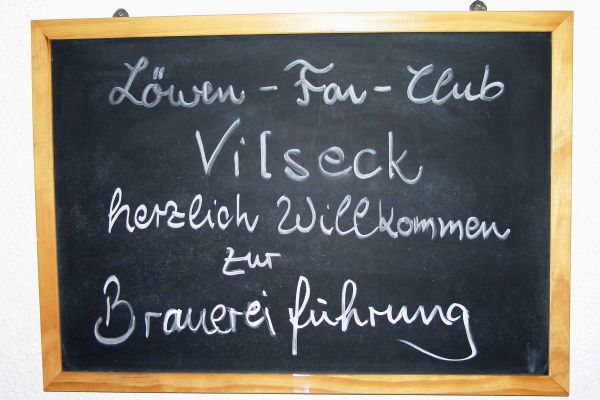 Löwen - Fan - Club
Vilseck
herzlich Willkommen
zur
Brauereiführung